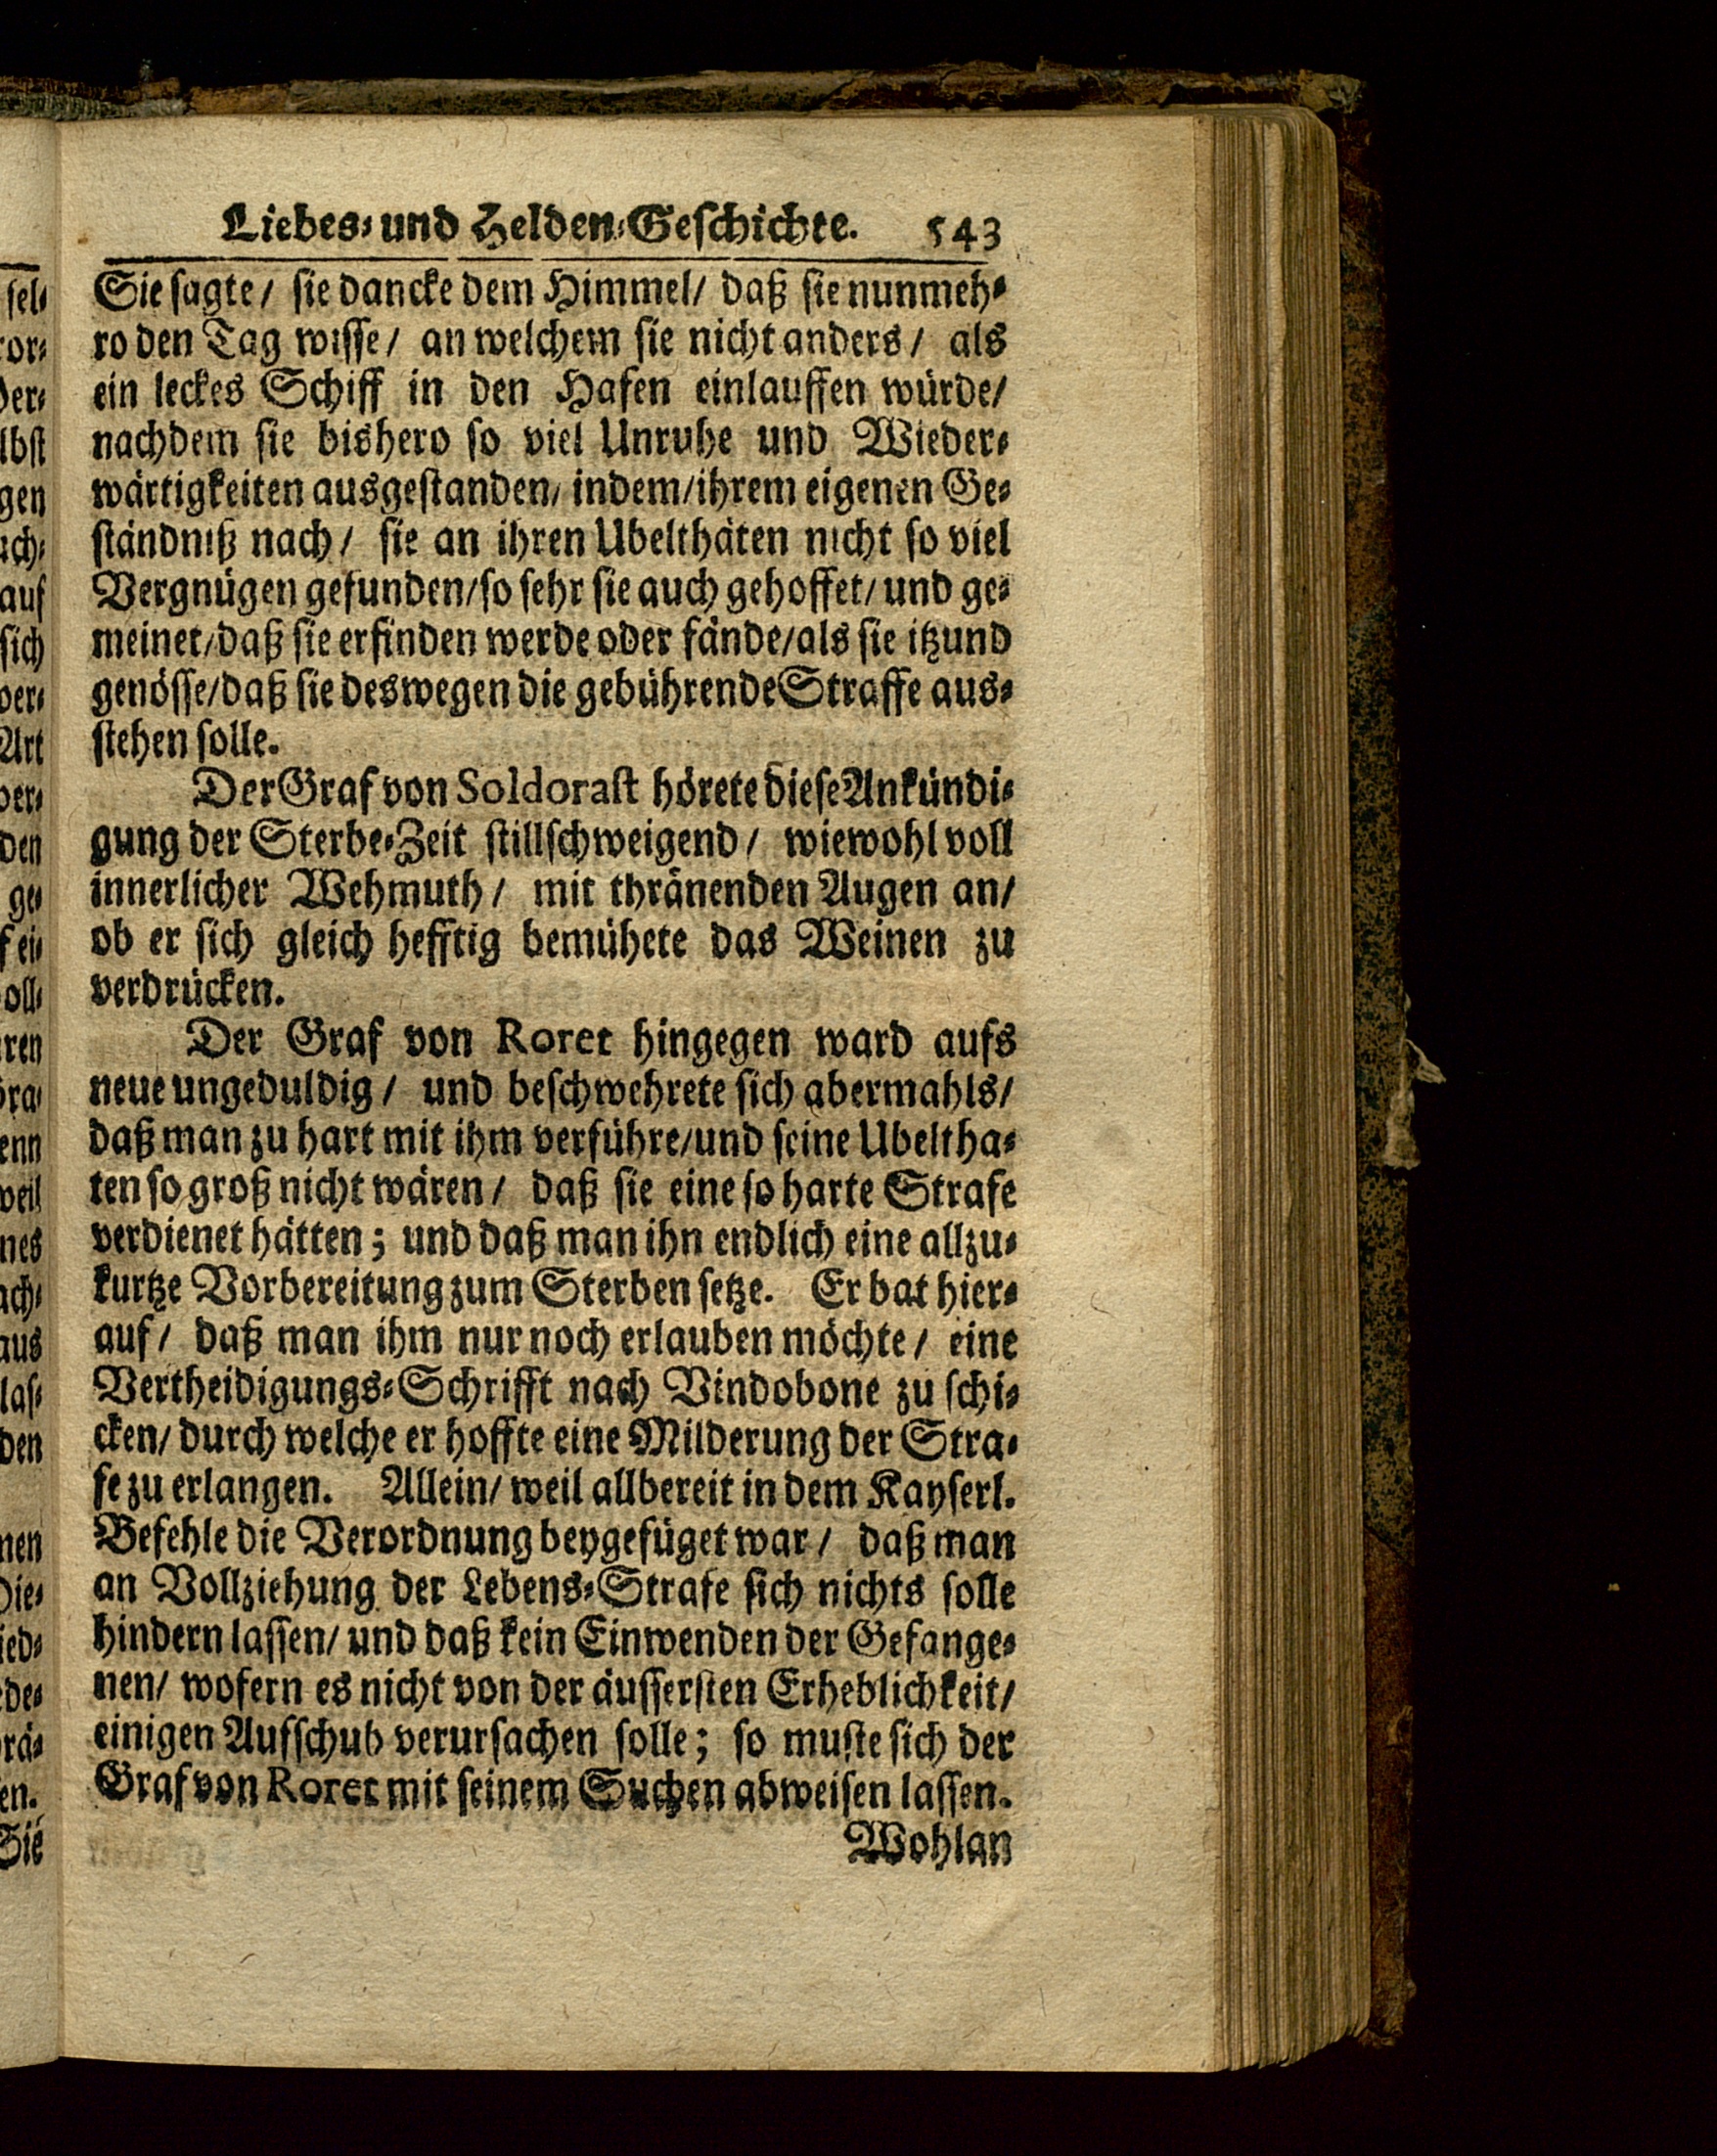 Liebes- und Helden-Geschichte. 543
Sie sagte/ sie dancke dem Himmel/ daß sie nunmeh-
ro den Tag wisse/ an welchem sie nicht anders/ als
ein leckes Schiff in den Hafen einlauffen würde/
nachdem sie bishero so viel Unruhe und Wieder-
wärtigkeiten ausgestanden/ indem/ ihrem eigenen Ge-
ständniß nach/ sie an ihren Ubelthäten nicht so viel
Vergnügen gefunden/ so sehr sie auch gehoffet/ und ge-
meinet/ daß sie erfinden werde oder fände/ als sie itzund
genösse/ daß sie deswegen die gebührende Straffe aus-
stehen solle.
Der Graf von Soldorast hörete diese Ankündi-
gung der Sterbe-Zeit stillschweigend/ wiewohl voll
innerlicher Wehmuth/ mit thränenden Augen an/
ob er sich gleich hefftig bemühete das Weinen zu
verdrücken.
Der Graf von Roret hingegen ward aufs
neue ungeduldig/ und beschwehrete sich abermahls/
daß man zu hart mit ihm verführe/ und seine Ubeltha-
ten so groß nicht wären/ daß sie eine so harte Strafe
verdienet hätten; und daß man ihn endlich eine allzu-
kurtze Vorbereitung zum Sterben setze. Er bat hier-
auf/ daß man ihm nur noch erlauben möchte/ eine
Vertheidigungs-Schrifft nach Vindobone zu schi-
cken/ durch welche er hoffte eine Milderung der Stra-
fe zu erlangen. Allein/ weil allbereit in dem Kayserl.
Befehle die Verordnung beygefüget war/ daß man
an Vollziehung der Lebens-Strafe sich nichts solle
hindern lassen/ und daß kein Einwenden der Gefange-
nen/ wofern es nicht von der äussersten Erheblichkeit/
einigen Aufschub verursachen solle; so muste sich der
Graf von Roret mit seinem Suchen abweisen lassen.
Wohlan